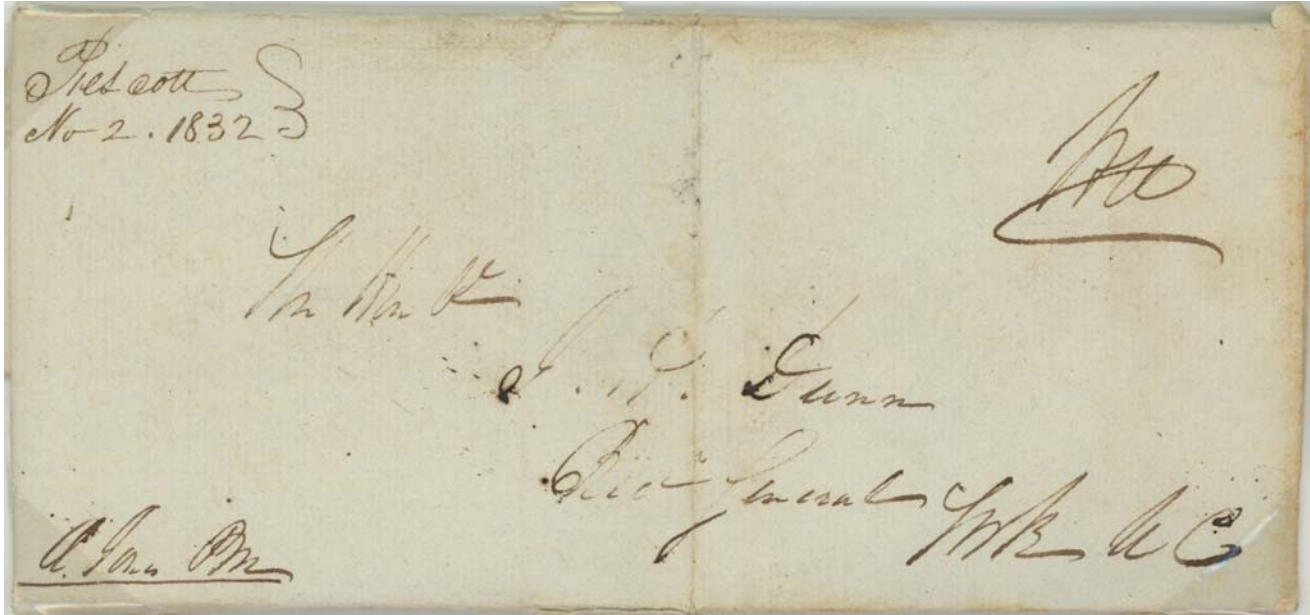 Prescott
No 2. 1832
Free
The Honble
J. H. Dunn
Recr General
York U C
A. Jones PM